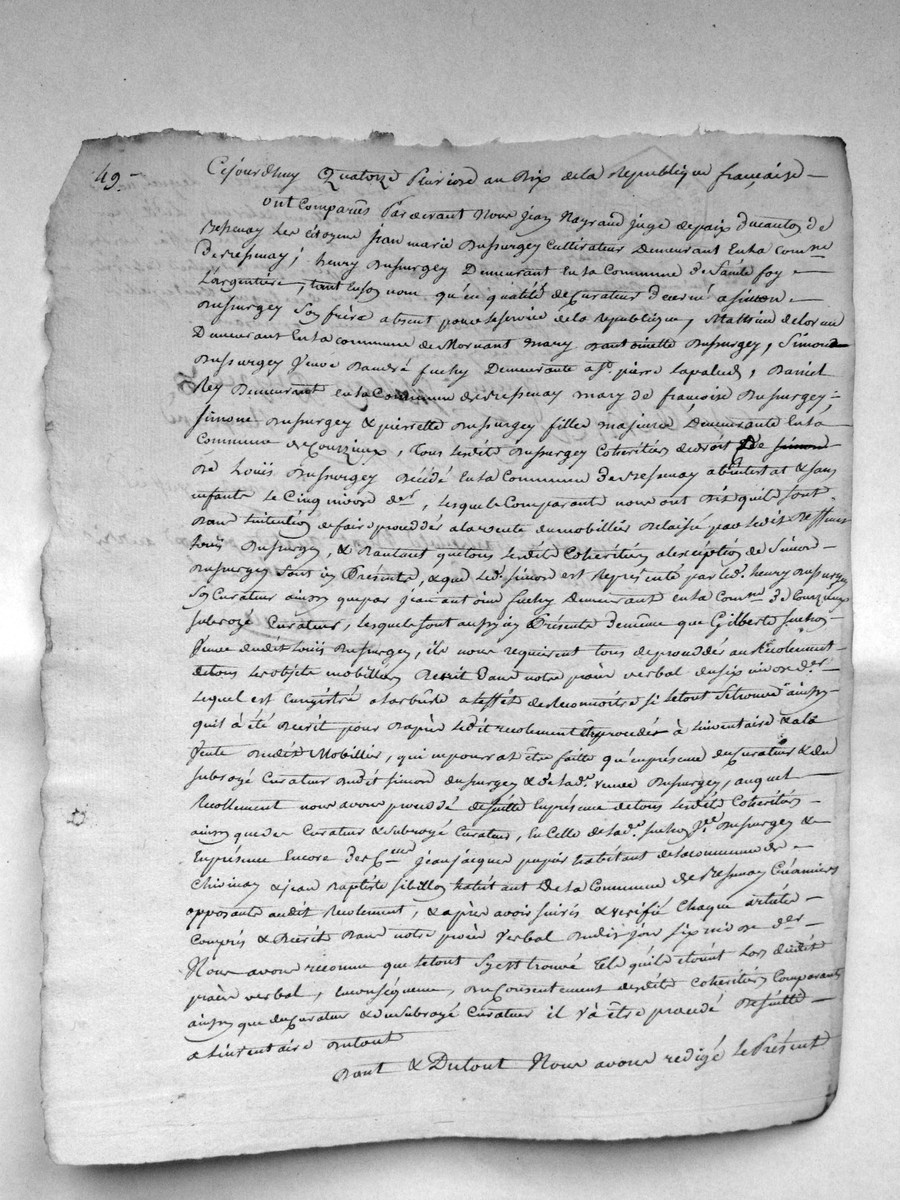 49.
Cejourdhuy Quatorze Pluviose an Dix de la Republique française
ont comparûs Pardevant Nous Jean Nayrand juge depaix du canton de
Bessenay Les citoyens Jean marie Dussurgey Cultivateur Demeurant en la com.ne
de Bessenay; henry Dussurgey Demeurant en la Commune de Sainte foy
L'argentiere, tant en son nom qu'en qualité de Curateur decerné a simon
Dussurgey Son frère absent pour le service de la Republique, Mathieu delorme
Demeurant en la commune de Mornant mary D'antoinette Dussurgey, Simonde
Dussurgey Veuve D'andré fuchy Demeurante a S.t pierre Lapalud, Daniel
Rey Demeurant en la Commune de Bessenay mary de françoise Dussurgey,
Simone Dussurgey & pierrette Dussurgey filles majeures, Demeurante en la
Commune de Courzieux, Tous lesdits Dussurgey Coheritiers de droit
De Louis Dussurgey Décédé en la Commune de Bessenay abintestat & sans
enfants le Cinq nivose d.er, lesquels Comparants nous ont Dit quils sont
Dans l'intention de faire procedder a la vente du mobillier Delaissé par ledit Deffunt
Louis Dussurgey, & D'autant que tous lesdits Coheritiers a l'exception de Simon
Dussurgey Sont icy Presents, & que led. simon est Représenté par led. henry Dussurgey
Son Curateur ainsy que par Jean antoine fuchy Demeurant en la Com.ne de Courzieux
subrogé Curateur, lesquels sont aussy icy Présents de même que Gilberte
Veuve dudit Louis Dussurgey, ils nous requierent tous de procedder au Récolement
de tous les objets mobilliers Décrit Dans notre procès verbal du six nivose d.er
Lequel est enregistré a Larbrêle a l'effet de reconnoitre si le tout se trouve ainsy
quil à été Décrit pour D'après ledit recolement être procedés à l'inventaire & a la
Vente Dudit Mobillier, qui ne pourrat être faite qu'en présence du Curateur & du
subrogé Curateur Dudit Simon Dussurgey & de lad. veuve Dussurgey, auquel
Recollement nous avons proceddé de suitte En présence de tous lesdits Coheritiers
ainsy que des Curateur & subrogé Curateur, en Celle de lad. V.e Dussurgey &
En présence Encore des C.ens Jean Jacques papin habitant de la commune de
Chevinay & Jean Baptiste sibillon habitant de la Commune de Bessenay Créanciers
opposants audit Recolement, & après avoir suivis & verifié Chaque articles
Compris & Décrit Dans notre procès verbal Dudit jour six nivose d.er
Nous avons reconnu que le tout s'y est trouvé Tels quils étoient Lors dudit
procès verbal, en conséquence, du Consentement desdits Coheritiers Comparants
ainsy que du Curateur & du subrogé Curateur il và être proceddé De suitte
a L'inventaire Dutout
Dont & Dutout Nous avons redigé le Présent